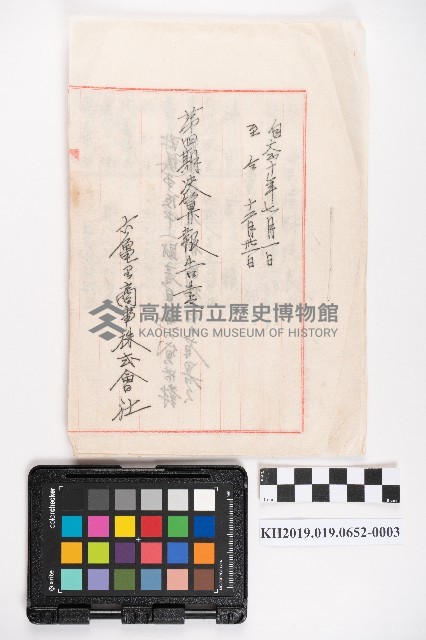 自大正十年七月一日
至仝 十二月卅一日
第四期決算報告書
六龜里商事株式會社
高雄市立歷史博物館
KAOHSIUNG MUSEUM OF HISTORY
colorchecker
x-rite
KH2019.019.0652-0003